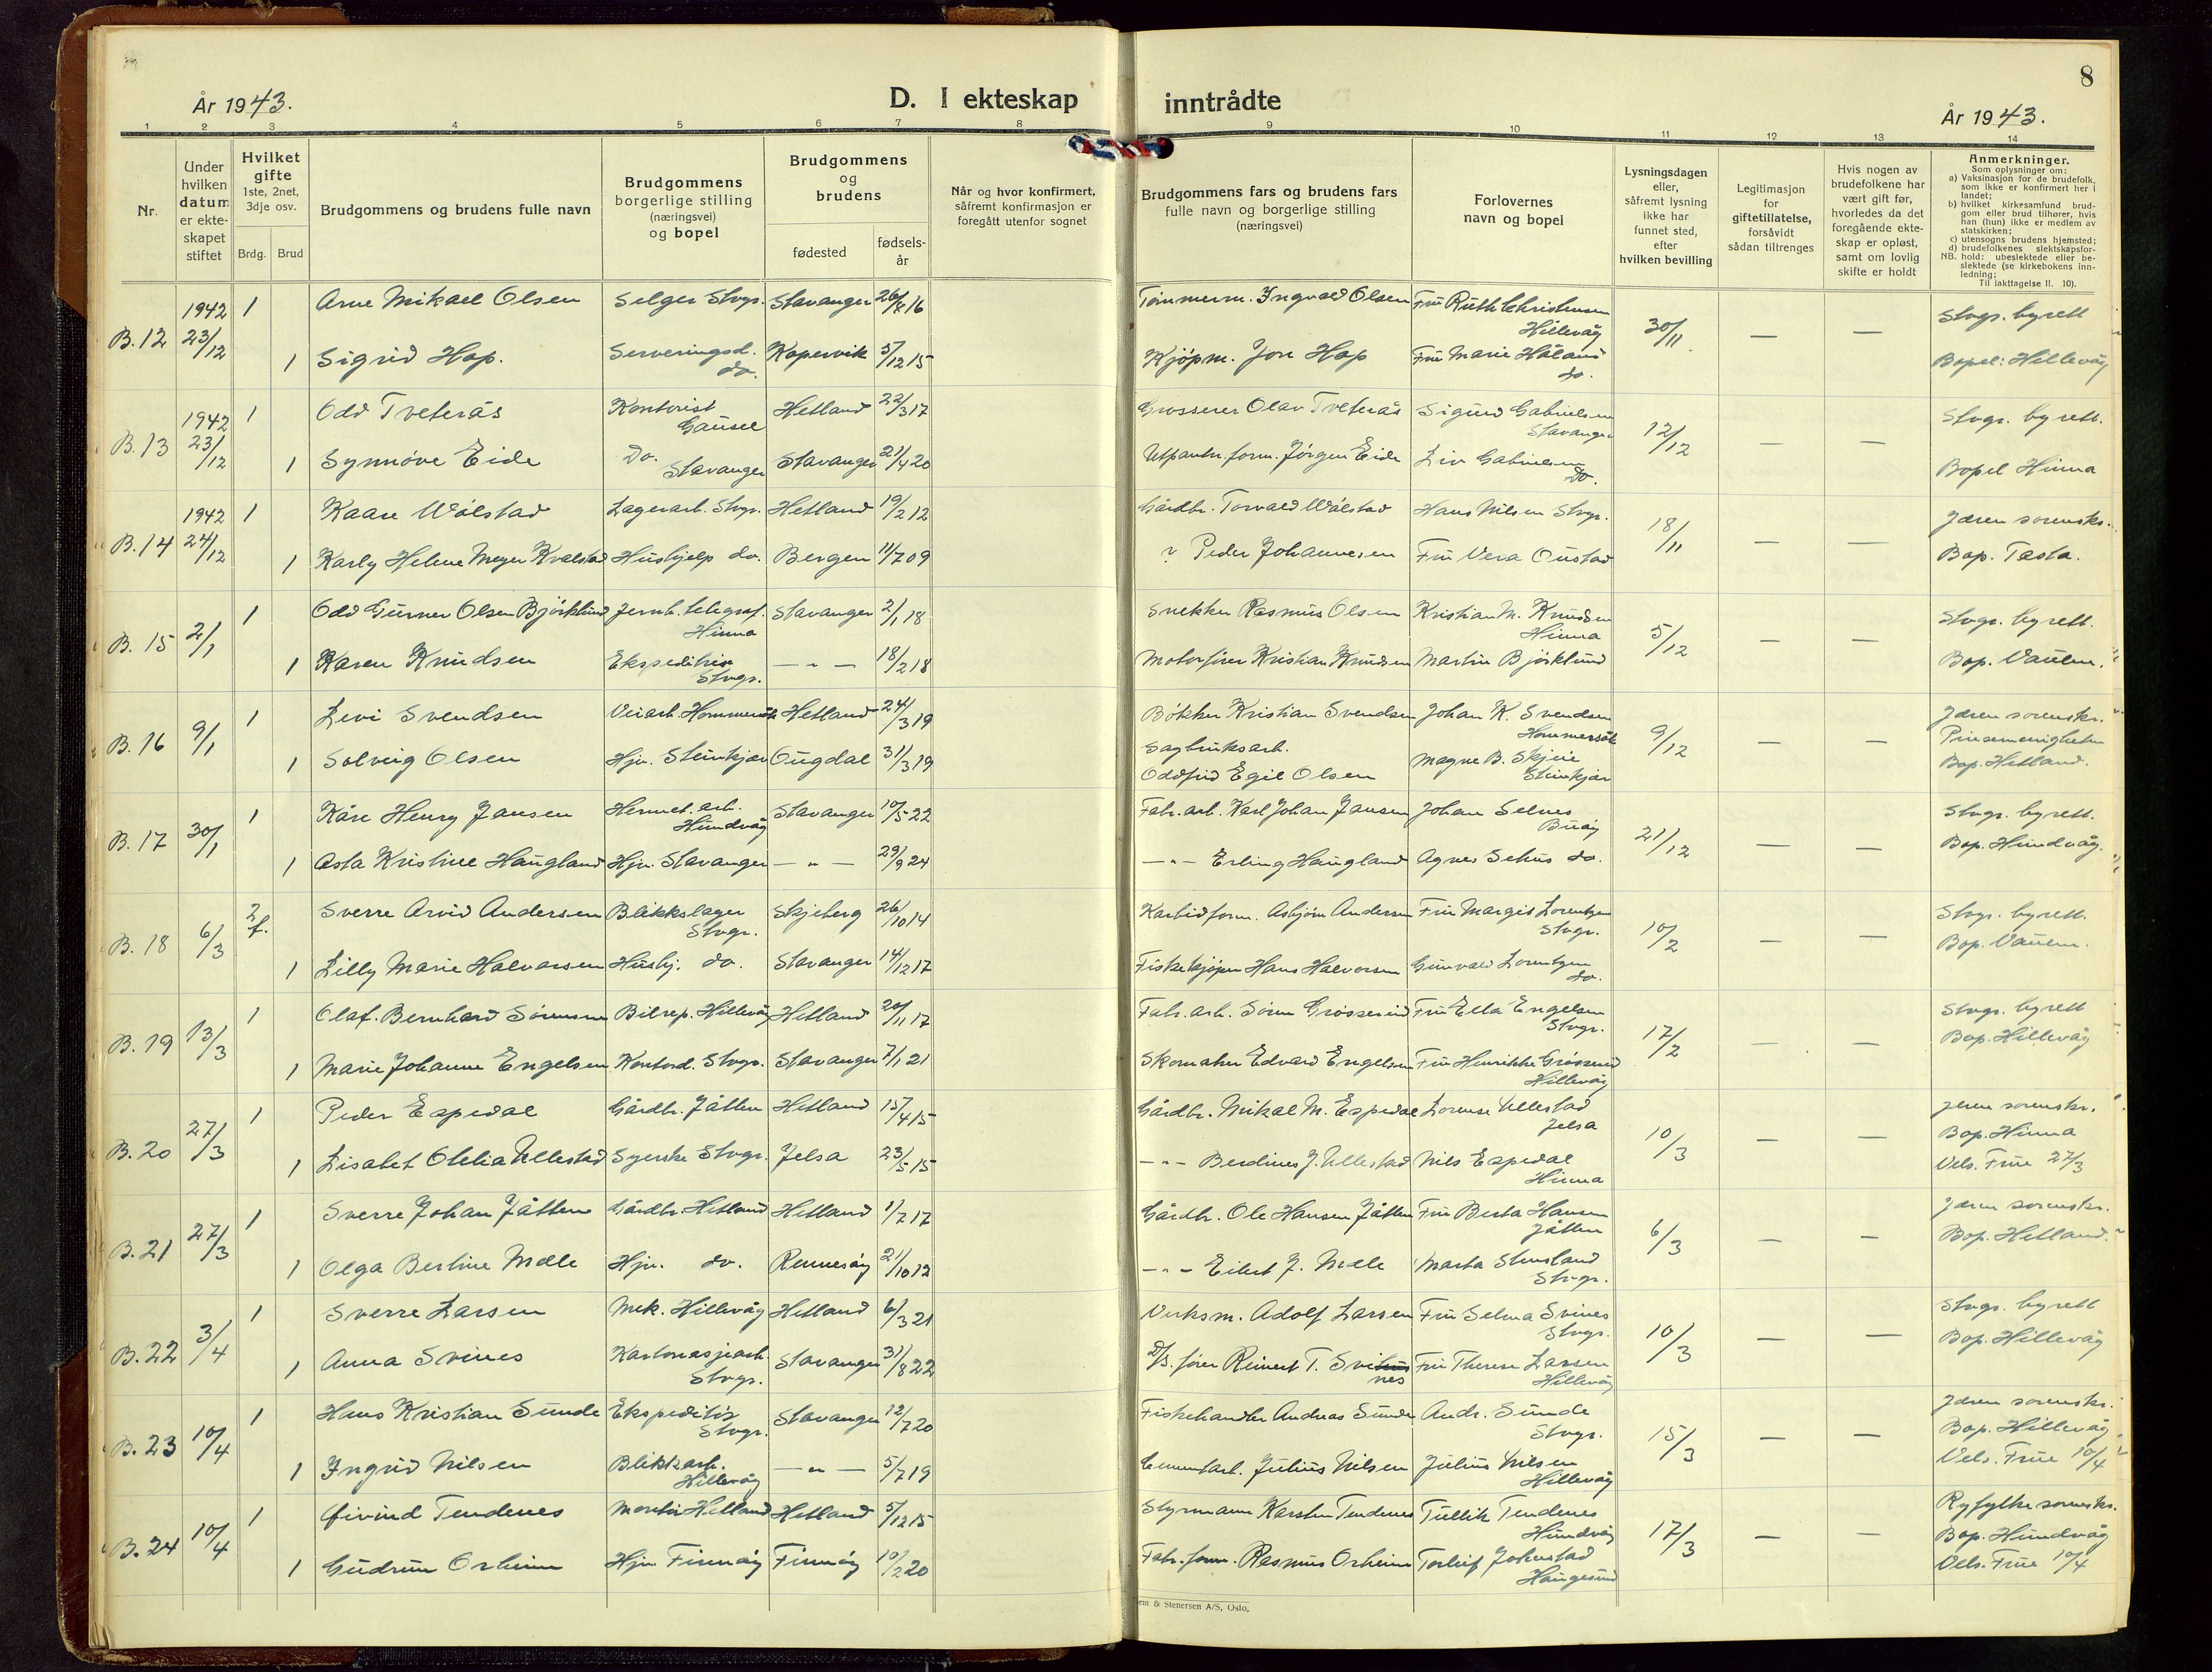 8
År 1943.
D. I ekteskap inntrådte
År 1943.
1 2 3 4 5 6 7 8 9 10 11 12 13 14
Nr.
Under hvilken datum er ekteskapet stiftet
Hvilket gifte 1ste, 2net, 3dje osv.
Brdg. Brud
Brudgommens og brudens fulle navn
Brudgommens borgerlige stilling (næringsvei) og bopel
Brudgommens og brudens
fødested
fødselsår
Når og hvor konfirmert, såfremt konfirmasjon er foregått utenfor sognet
Brudgommens fars og brudens fars fulle navn og borgerlige stilling (næringsvei)
Forlovernes navn og bopel
Lysningsdagen eller, såfremt lysning ikke har funnet sted, efter hvilken bevilling
Legitimasjon for giftetillatelse, forsåvidt sådan tiltrenges
Hvis nogen av brudefolkene har vært gift før, hvorledes da det foregående ekteskap er opløst, samt om lovlig skifte er holdt
Anmerkninger.
Som oplysninger om:
a) Vaksinasjon for de brudefolk, som ikke er konfirmert her i landet;
b) hvilket kirkesamfund brudgom eller brud tilhører, hvis han (hun) ikke er medlem av statskirken;
c) utensogns brudens hjemsted;
d) brudefolkenes slektskapsforhold: ubeslektede eller beslektede (se kirkebokens innledning;
NB. Til iakttagelse II. 10).
B.12 1942 23/12 1 Arne Mikael Olsen Selger Stvgr. Stavanger 26/8 16 Tømmerm. Ingvald Olsen Fru Ruth Christensen Hillevåg 30/11 — — Stvgr. byrett
1 Sigrid Hop. Serveringsd. do. Kopervik 5/12 15 Kjøpm. Jon Hop Fru Marie Håland do. Bopel: Hillevåg
B.13 1942 23/12 1 Odd Tveterås Kontorist Gausel Hetland 22/3 17 Grosserer Olav Tveterås Sigurd Gabrielsen Stavanger 12/12 — — Stvgr. byrett.
1 Synnøve Eide Do. Stavanger Stavanger 21/4 20 Utpantn.form. Jørgen Eide Liv Gabrielsen Do. Bopel Hinna
B.14 1942 24/12 1 Kaare Wølstad Lagerarb. Stvgr. Hetland 19/2 12 Gårdbr. Torvald Wølstad Hans Nilsen Stvgr. 18/11 — — Jæren sorenskr.
1 Karly Helene Meyer Kvalstad Hushjelp do. Bergen 11/7 09 ? Peder Johannesen Fru Vera Oustad Bop. Tasta.
B.15 2/1 1 Odd Gurner Olsen Bjørklund Jernb. telegraf. Hinna Stavanger 2/1 18 Snekker Rasmus Olsen Kristian M. Knudsen Hinna 5/12 — — Stvgr. byrett.
1 Karen Knudsen Ekspeditrise Stvgr. — " — 18/2 18 Motorfører Kristian Knudsen Martin Bjørklund Bop. Vaulen.
B.16 9/1 1 Levi Svendsen Veiarb. Hommersåk Hetland 24/3 19 Bøkker Kristian Svendsen Johan K. Svendsen Hommersåk 9/12 — — Jæren sorenskr. Pinsemenigheten
1 Solveig Olsen Hjv. Steinkjær Ougdal 31/3 19 Sagbruksarb. Oddfrid Egil Olsen Magne B. Skjeie Steinkjær Bop. Hetland.
B.17 30/1 1 Kåre Henry Jansen Hermet. arb. Hundvåg Stavanger 10/5 22 Fabr. arb. Karl Johan Jansen Johan Selnes Buøy 21/12 — — Stvgr. byrett.
1 Asta Kristine Haugland Hjv. Stavanger — " — 29/9 24 — " — Erling Haugland Agnes Sehus do. Bop. Hundvåg.
B.18 6/3 2 f. Sverre Arvid Andersen Blikkslager Stvgr. Skjeberg 26/10 14 Karbidform. Asbjørn Andersen Fru Margit Lorentzen Stvgr. 10/2 — — Stvgr. byrett.
1 Lilly Marie Halvorsen Hushj. do. Stavanger 14/12 17 Fiskekjøper Hans Halvorsen Gunvald Lorentzen do. Bop. Vaulen.
B.19 13/3 1 Olaf. Bernhard Sørensen Bilrep. Hillevåg Hetland 20/11 17 Fabr. arb. Søren Grøsserud Fru Ella Engelsen Stvgr. 17/2 — — Stvgr. byrett
1 Marie Johanne Engelsen Kontord. Stvgr. Stavanger 7/1 21 Skomaker Edvard Engelsen Fru Henrikke Grøsserud Hillevåg Bop. Hillevåg
B.20 27/3 1 Peder Espedal Gårdbr. Jåtten Hetland 15/4 15 Gårdbr. Mikal M. Espedal Lorense Ullestad Jelsa 10/3 — — Jæren sorenskr. Bop. Hinna
1 Lisabet Otelia Ullestad Syerske Stvgr. Jelsa 23/5 15 — " — Berdines J. Ullestad Nils Espedal Hinna Vels. Frue 27/3
B.21 27/3 1 Sverre Johan Jåtten Gårdbr. Hetland Hetland 1/7 17 Gårdbr. Ole Hansen Jåtten Fru Berta Hansen Jåtten 6/3 — — Jæren sorenskr.
1 Olga Bertine Mæle Hjv. do. Rennesøy 21/10 12 — " — Eilert J. Mæle Marta Stensland Stvgr. Bop. Hetland.
B.22 3/4 1 Sverre Larsen Mek. Hillevåg Hetland 6/3 21 Verksm. Adolf Larsen Fru Selma Svines Stvgr. 10/3 — — Stvgr. byrett
1 Anna Svines Kartonasjearb. Stvgr. Stavanger 31/8 22 D/S. fører Reinert T. Svines Fru Therese Larsen Hillevåg Bop. Hillevåg
B.23 10/4 1 Hans Kristian Sunde Ekspeditør Stvgr. Stavanger 12/7 20 Fiskehandler Andreas Sunde Andr. Sunde Stvgr. 15/3 — — Jæren sorenskr. Bop. Hillevåg
1 Ingrid Nilsen Blikkarb. Hillevåg — " — 5/7 19 Cementarb. Julius Nilsen Julius Nilsen Hillevåg Vels. Frue 10/4
B.24 10/4 1 Øivind Tendenes Montør Hetland Hetland 5/12 15 Styrmann Karsten Tendenes Tellik Tendenes Hundvåg 17/3 — — Ryfylke sorenskr. Bop. Hundvåg
1 Gudrun Orheim Hjv. Finnøy Finnøy 10/2 20 Fabr. form. Rasmus Orheim Torleif Johnstad Haugesund Vels. Frue 10/4
em & Stenersen A/S, Oslo.